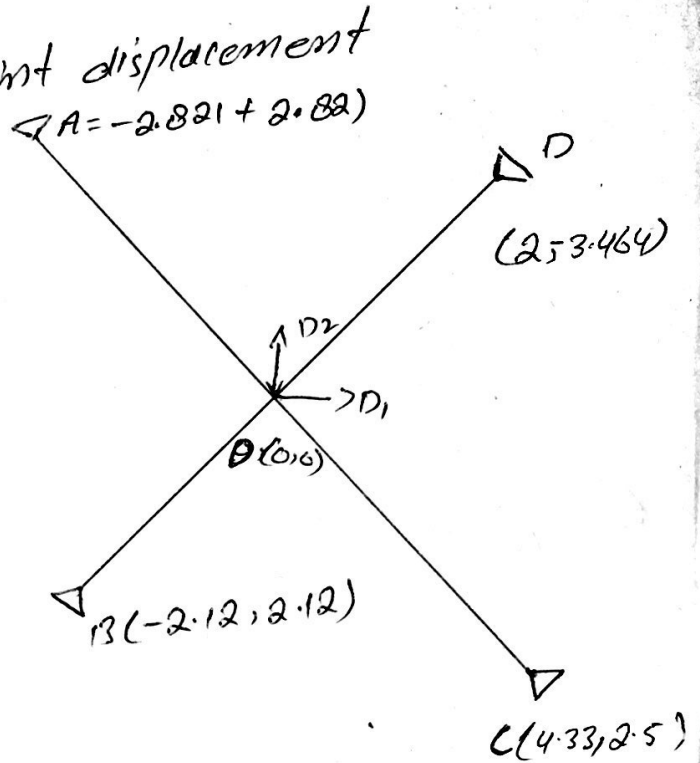 displacement
A=-2.821+2.82)
D
(2,3.464)
D2
D1
θ(0,0)
B(-2.12,2.12)
C(4.33,2.5)